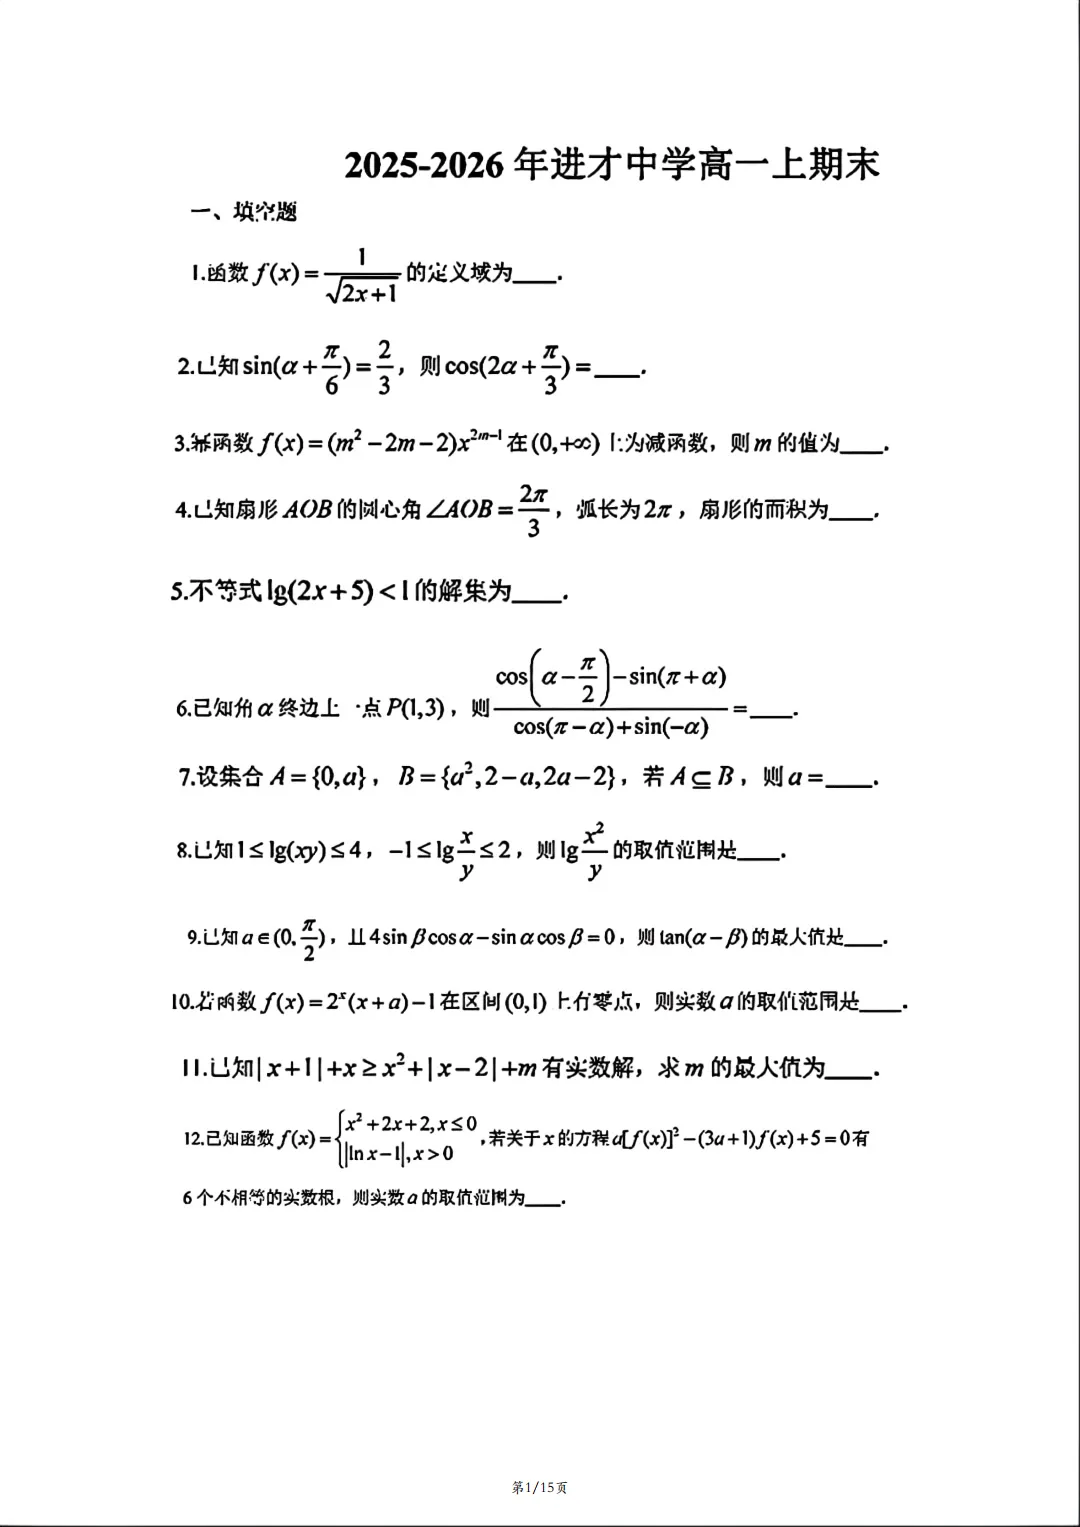 2025-2026 年进才中学高一上期末
一、填空题
1.函数 f(x) = 1/√(2x+1) 的定义域为____.
2.已知 sin(α + π/6) = 2/3，则 cos(2α + π/3) = ____.
3.幂函数 f(x) = (m² − 2m − 2)x^(2m−1) 在 (0,+∞) 上为减函数，则 m 的值为____.
4.已知扇形 AOB 的圆心角 ∠AOB = 2π/3，弧长为 2π，扇形的面积为____.
5.不等式 lg(2x+5) < 1 的解集为____.
6.已知角 α 终边上一点 P(1,3)，则 (cos(α − π/2) − sin(π + α))/(cos(π − α) + sin(−α)) = ____.
7.设集合 A = {0, a}，B = {a², 2 − a, 2a − 2}，若 A ⊆ B，则 a = ____.
8.已知 1 ≤ lg(xy) ≤ 4，−1 ≤ lg x/y ≤ 2，则 lg x²/y 的取值范围是____.
9.已知 a ∈ (0, π/2)，且 4sin β cos α − sin α cos β = 0，则 tan(α − β) 的最大值是____.
10.若函数 f(x) = 2^x(x + a) − 1 在区间 (0,1) 上有零点，则实数 a 的取值范围是____.
11.已知 | x+1 | + x ≥ x² + | x − 2 | + m 有实数解，求 m 的最大值为____.
12.已知函数 f(x) = { x² + 2x + 2, x ≤ 0; |ln x − 1|, x > 0 ,若关于 x 的方程 a[f(x)]² − (3a + 1)f(x) + 5 = 0 有
6 个不相等的实数根，则实数 a 的取值范围为____.
第1/15页